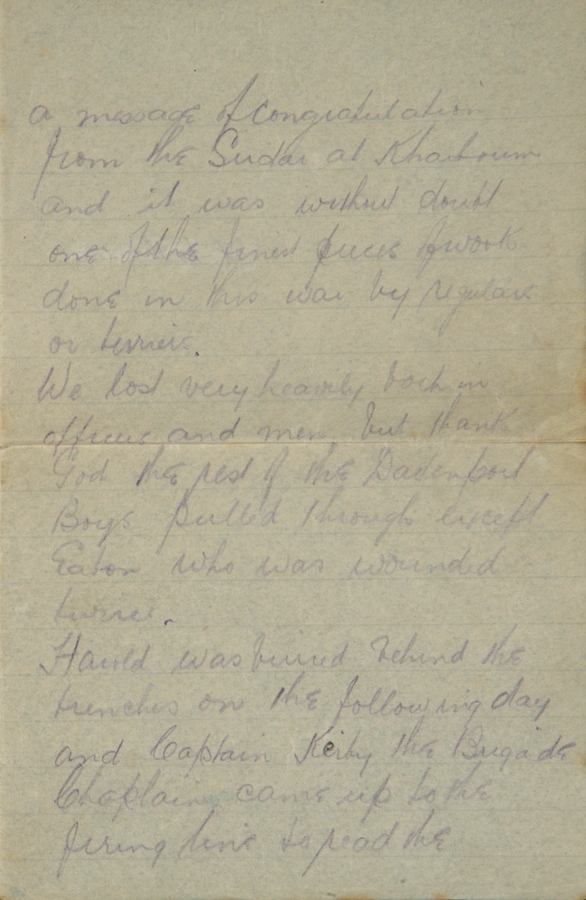 a message of congratulation
from the Sirdar at Khartoum
and it was without doubt
one of the finest pieces of work
done in this war by regulars
or terriers.
We lost very heavily both in
officers and men, but thank
God the rest of the Davenport
Boys pulled through except
Eaton who was wounded
twice.
Harold was buried behind the
trenches on the following day
and Captain Kerby the Brigade
Chaplain came up to the
firing line to read the